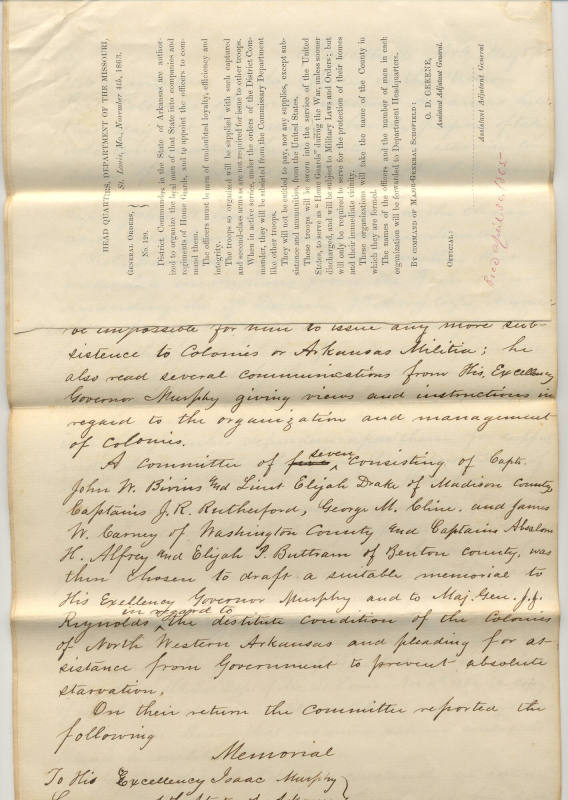 HEAD QUARTERS, DEPARTMENT OF THE MISSOURI,
St. Louis, Mo., November 4th, 1863.
GENERAL ORDERS,
No. 129.
District Commanders in the State of Arkansas are author-
ized to organize the loyal men of that State into companies and
regiments of Home Guards, and to appoint the officers to com-
mand them.
The officers must be men of undoubted loyalty, efficiency and
integrity.
The troops so organized will be supplied with such captured
and second-class arms as are not required for issue to other troops.
When in active service, under the orders of the District Com-
mander, they will be subsisted from the Commissary Department
like other troops.
They will not be entitled to pay, nor any supplies, except sub-
sistence and ammunition, from the United States.
These troops will be sworn into the service of the United
States, to serve as "Home Guards" during the War, unless sooner
discharged, and will be subject to Military Laws and Orders; but
will only be required to serve for the protection of their homes
and their immediate vicinity.
These organizations will take the name of the County in
which they are formed.
The names of the officers and the number of men in each
organization will be forwarded to Department Headquarters.
BY COMMAND OF MAJOR-GENERAL SCHOFIELD:
O. D. GREENE,
Assistant Adjutant General.
OFFICIAL:
Assistant Adjutant General
Rec'd April 20, 1865
be impossible for him to issue any more sub-
sistence to Colonies or Arkansas Militia; he
also read several communications from His, Excellency
Governor Murphy giving views and instructions in
regard to the organization and management
of Colonies.
A committee of five seven consisting of Capts.
John W. Bivins and Lieut Elijah Drake of Madison County
Captains J. R. Rutheford, George M. Cline. and James
W. Carney of Washington County and Captains Absalom
H. Alfrey and Elijah P. Buttram of Benton county, was
then Chosen to draft a suitable memorial to
His Exellency Governor Murphy and to Maj. Gen. J. J.
Reynolds in regard to the distitute condition of the Colonies
of North Western Arkansas and pleading for as-
sistance from Government to prevent absolute
starvation.
On their return the Committee reported the
following
Memorial
To His Excellency Isaac Murphy